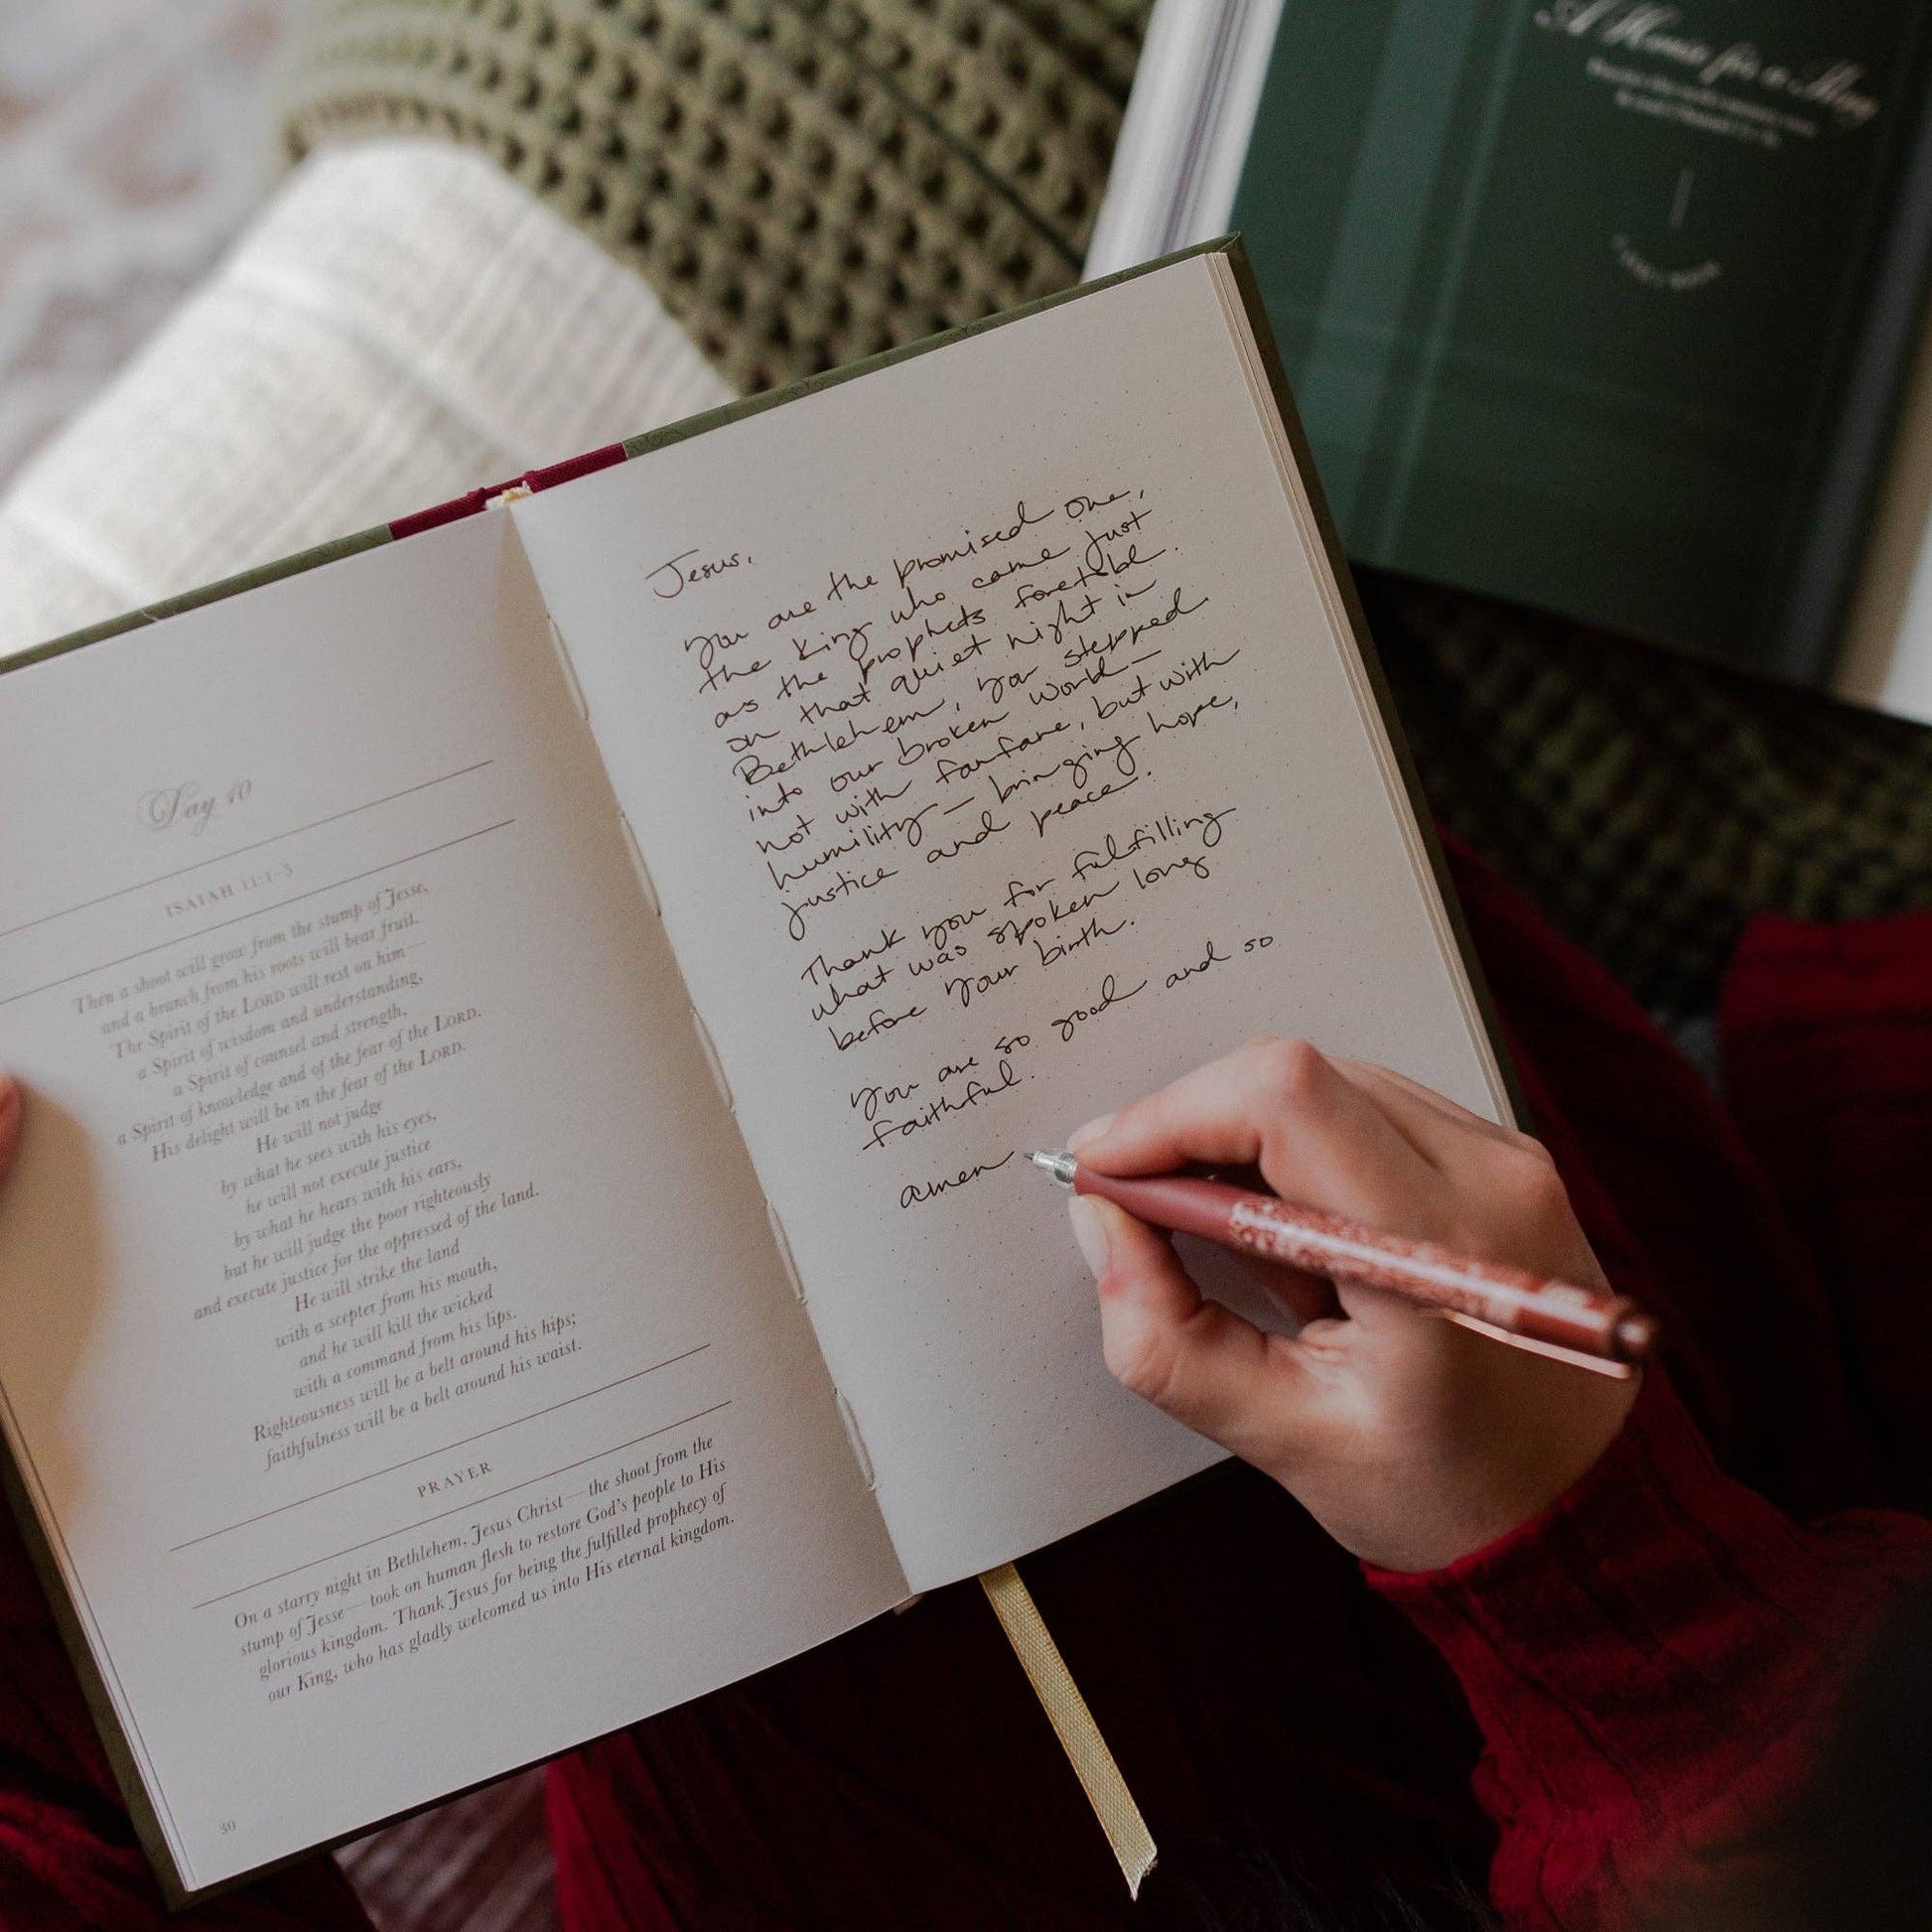 Day 10
ISAIAH 11:1–5
Then a shoot will grow from the stump of Jesse,
and a branch from his roots will bear fruit.
The Spirit of the LORD will rest on him—
a Spirit of wisdom and understanding,
a Spirit of counsel and strength,
a Spirit of knowledge and of the fear of the LORD.
His delight will be in the fear of the LORD.
He will not judge
by what he sees with his eyes,
he will not execute justice
by what he hears with his ears,
but he will judge the poor righteously
and execute justice for the oppressed of the land.
He will strike the land
with a scepter from his mouth,
and he will kill the wicked
with a command from his lips.
Righteousness will be a belt around his hips;
faithfulness will be a belt around his waist.
PRAYER
On a starry night in Bethlehem, Jesus Christ—the shoot from the
stump of Jesse—took on human flesh to restore God's people to His
glorious kingdom. Thank Jesus for being the fulfilled prophecy of
our King, who has gladly welcomed us into His eternal kingdom.
30
Jesus,
You are the promised one,
the King who came just
as the prophets foretold.
on that quiet night in
Bethlehem, you stepped
into our broken world—
not with fanfare, but with
humility— bringing hope,
justice and peace.
Thank you for fulfilling
what was spoken long
before Your birth.
You are so good and so
faithful.
amen